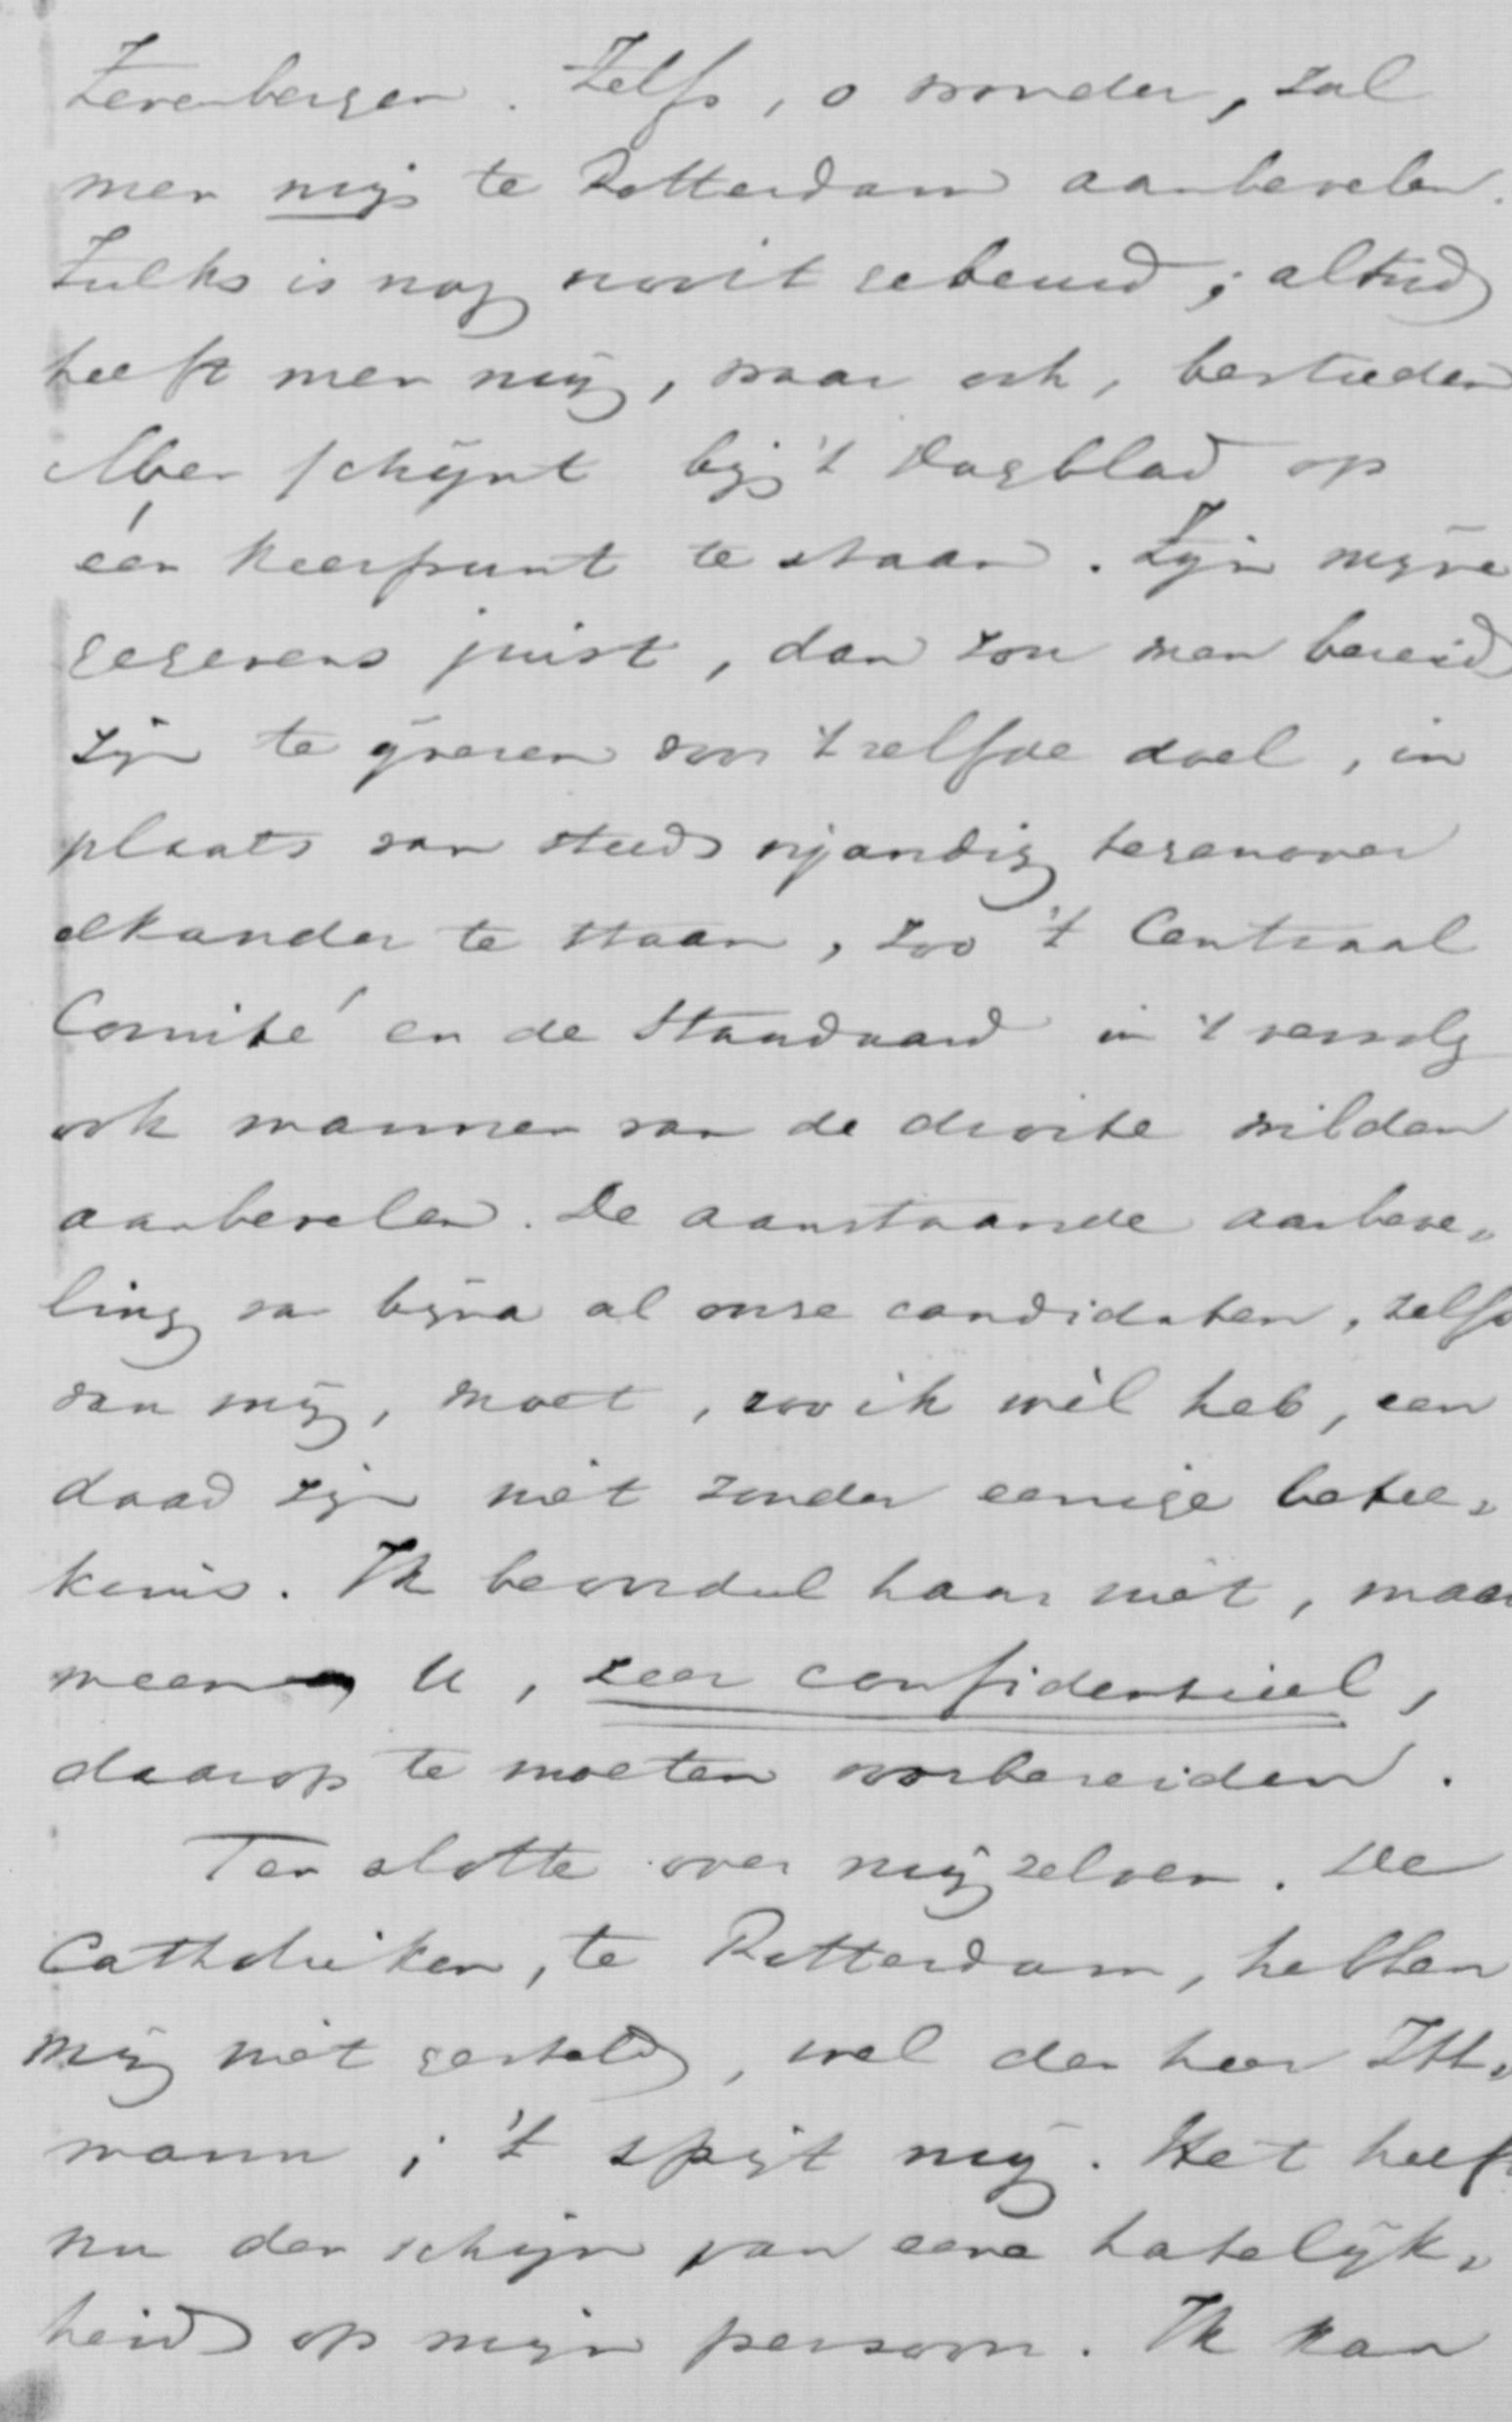 Zevenbergen. Zelfs, o wonder, zal
men mij te Rotterdam aanbevelen.
Zulks is nog nooit gebeurd; altijd
heeft men mij, waar ook, bestreden
Men schijnt bij 't Dagblad op
één keerpunt te staan. Zijn mijne
gegevens juist, dan zou men bereid
zijn te ijveren voor 't zelfde doel, in
plaats van steeds vijandig tegenover
elkander te staan, zoo 't Centraal
Comité en de Standaard in 't vervolg
ook mannen van de droite wilden
aanbevelen. De aanstaande aanbeve„
ling van bijna al onze candidaten, zelfs
van mij, moet, zoo ik wèl heb, een
daad zijn niet zonder eenige betee„
kenis. Ik beoordeel haar niet, maar
meen U, zeer confidentieel,
daarop te moeten voorbereiden.
Ten slotte over mij zelven. De
Catholieken, te Rotterdam, hebben
mij niet gesteld, wel den heer Itt„
mann; 't spijt mij. Het heeft
nu den schijn van eene hatelijk„
heid op mijn persoon. Ik kan